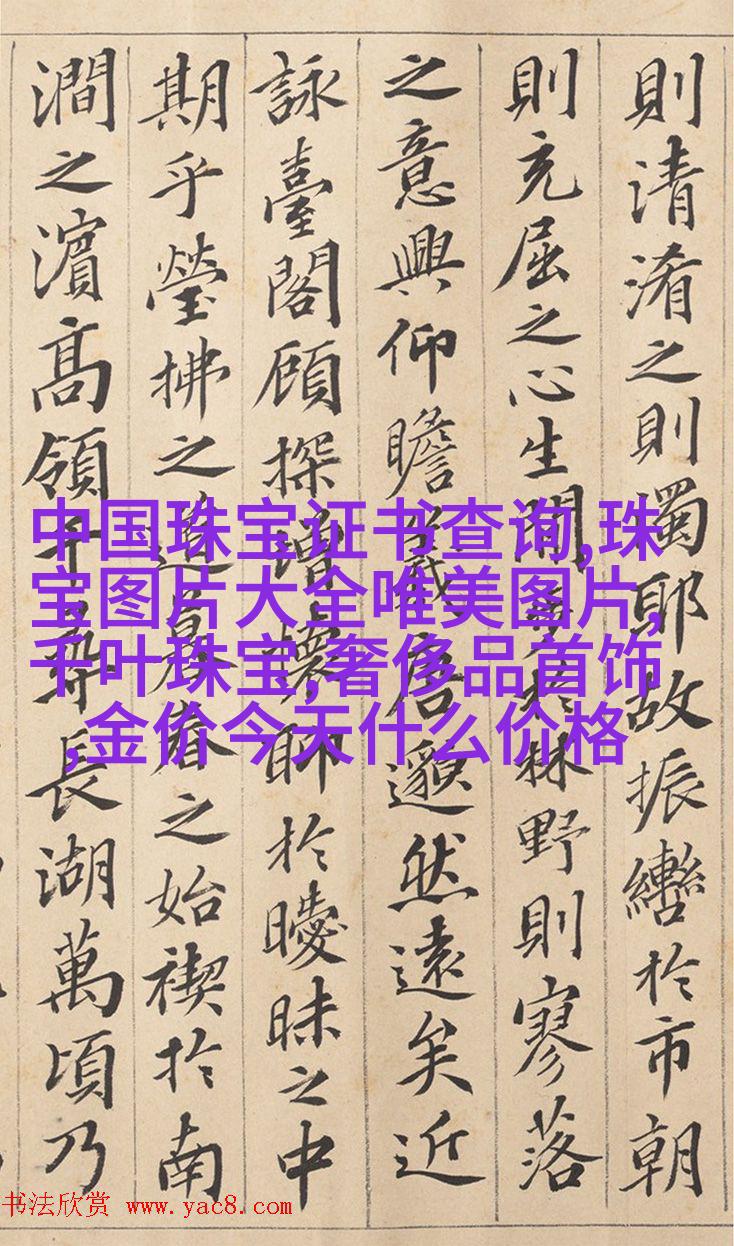 則清淆之則濁耶故振轡於市朝
則充屈之心生閒步於林野則寥落
之意興仰瞻羲唐邈然遠矣近
詠臺閣顧探增懷聊於曖昧之中
期乎瑩拂之道暮春之始禊於南
澗之濱高領千尋長湖萬頃乃
中国珠宝证书查询,珠
宝图片大全唯美图片,
千叶珠宝,奢侈品首饰
,金价今天什么价格
书法欣赏 www.yac8.com